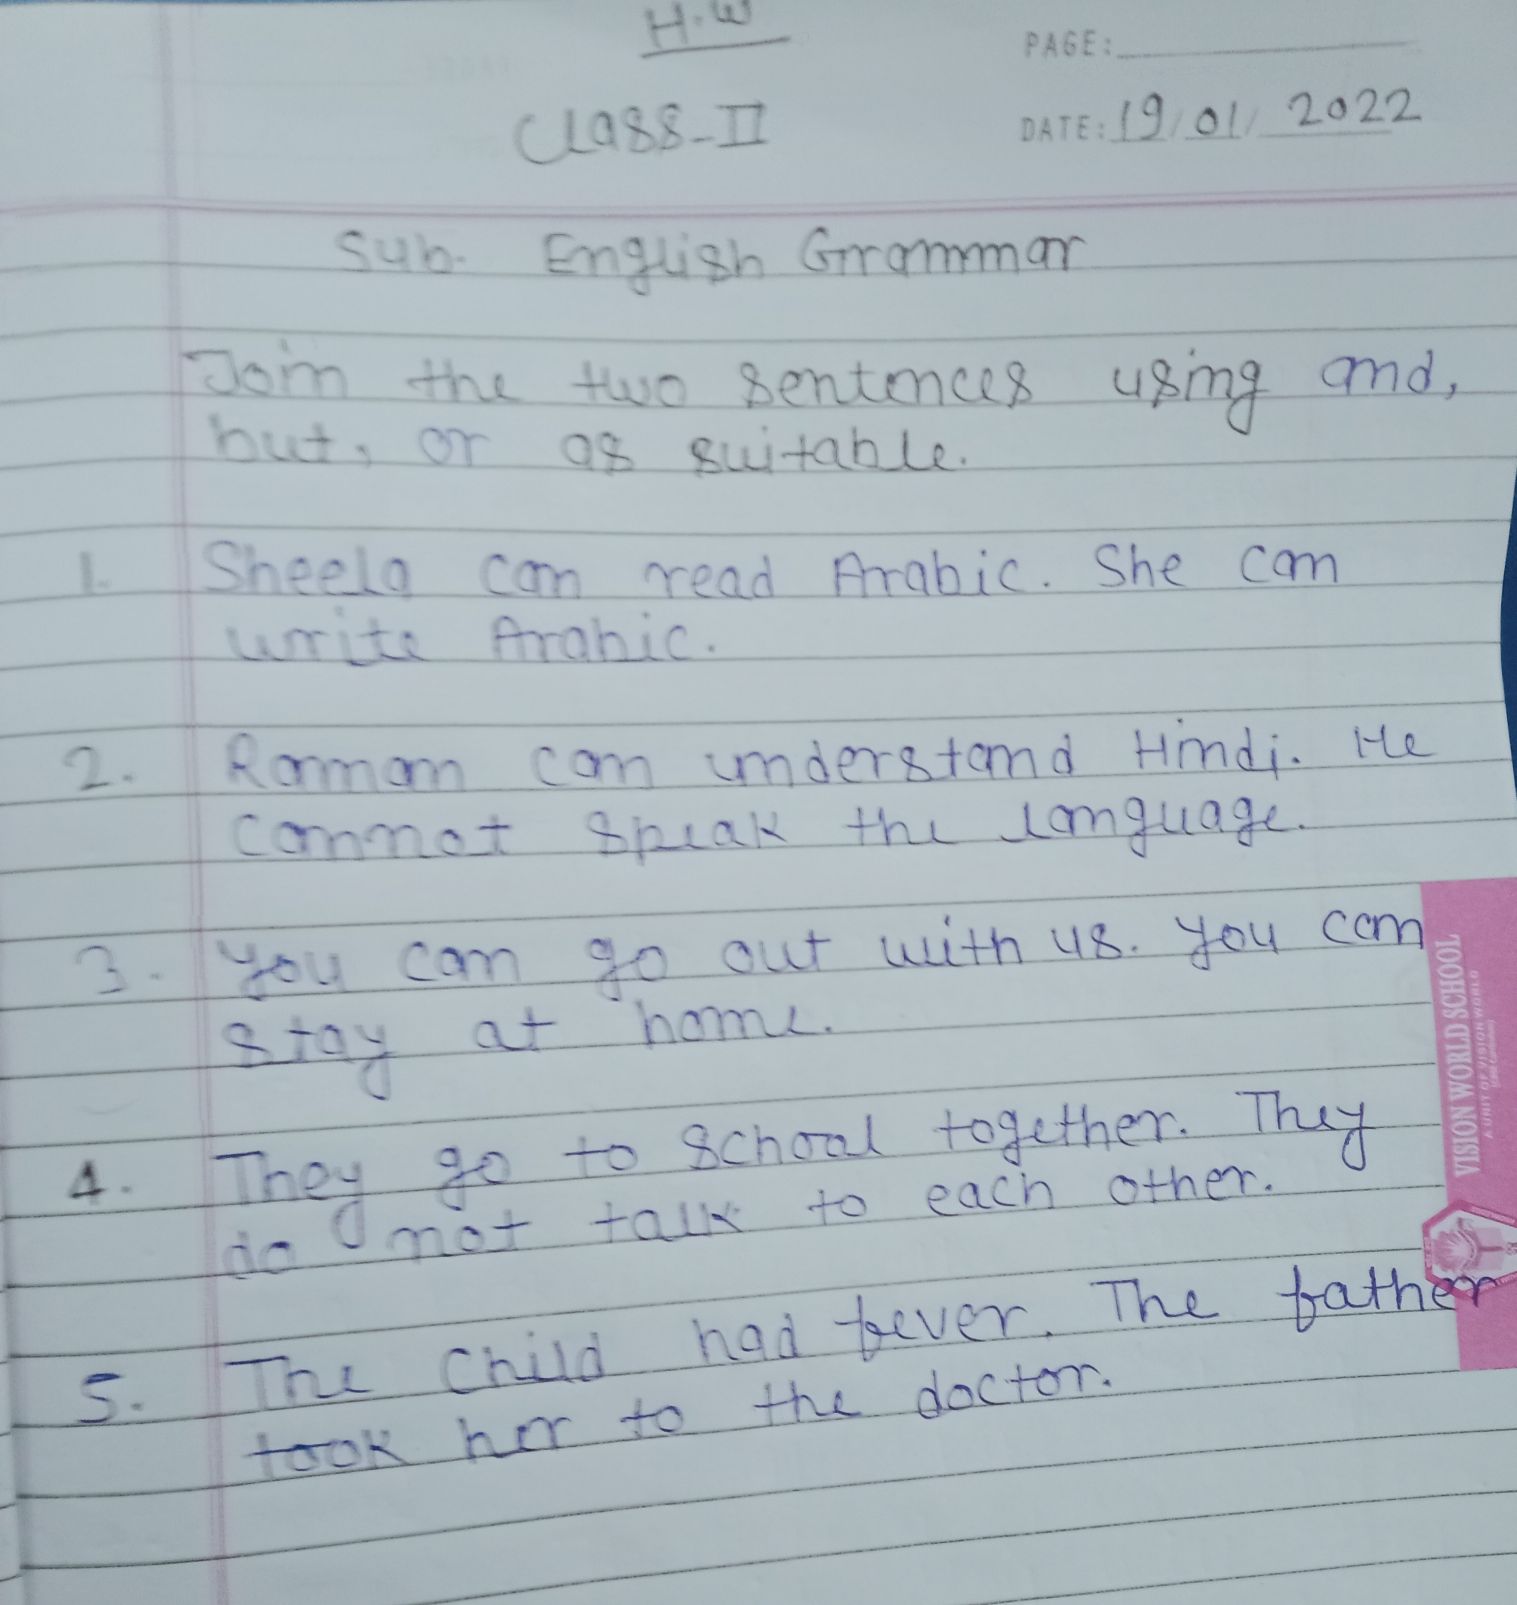 H.W
PAGE:
Class-II
DATE: 19/01/2022
Sub. English Grammar
Join the two sentences using and,
but, or as suitable.
1. Sheela can read Arabic. She can
write Arabic.
2. Raman can understand Hindi. He
cannot speak the language.
3. You can go out with us. You can
stay at home.
4. They go to school together. They
do not talk to each other.
5. The Child had fever. The father
took her to the doctor.
VISION WORLD SCHOOL
A UNIT OF VISION WORLD